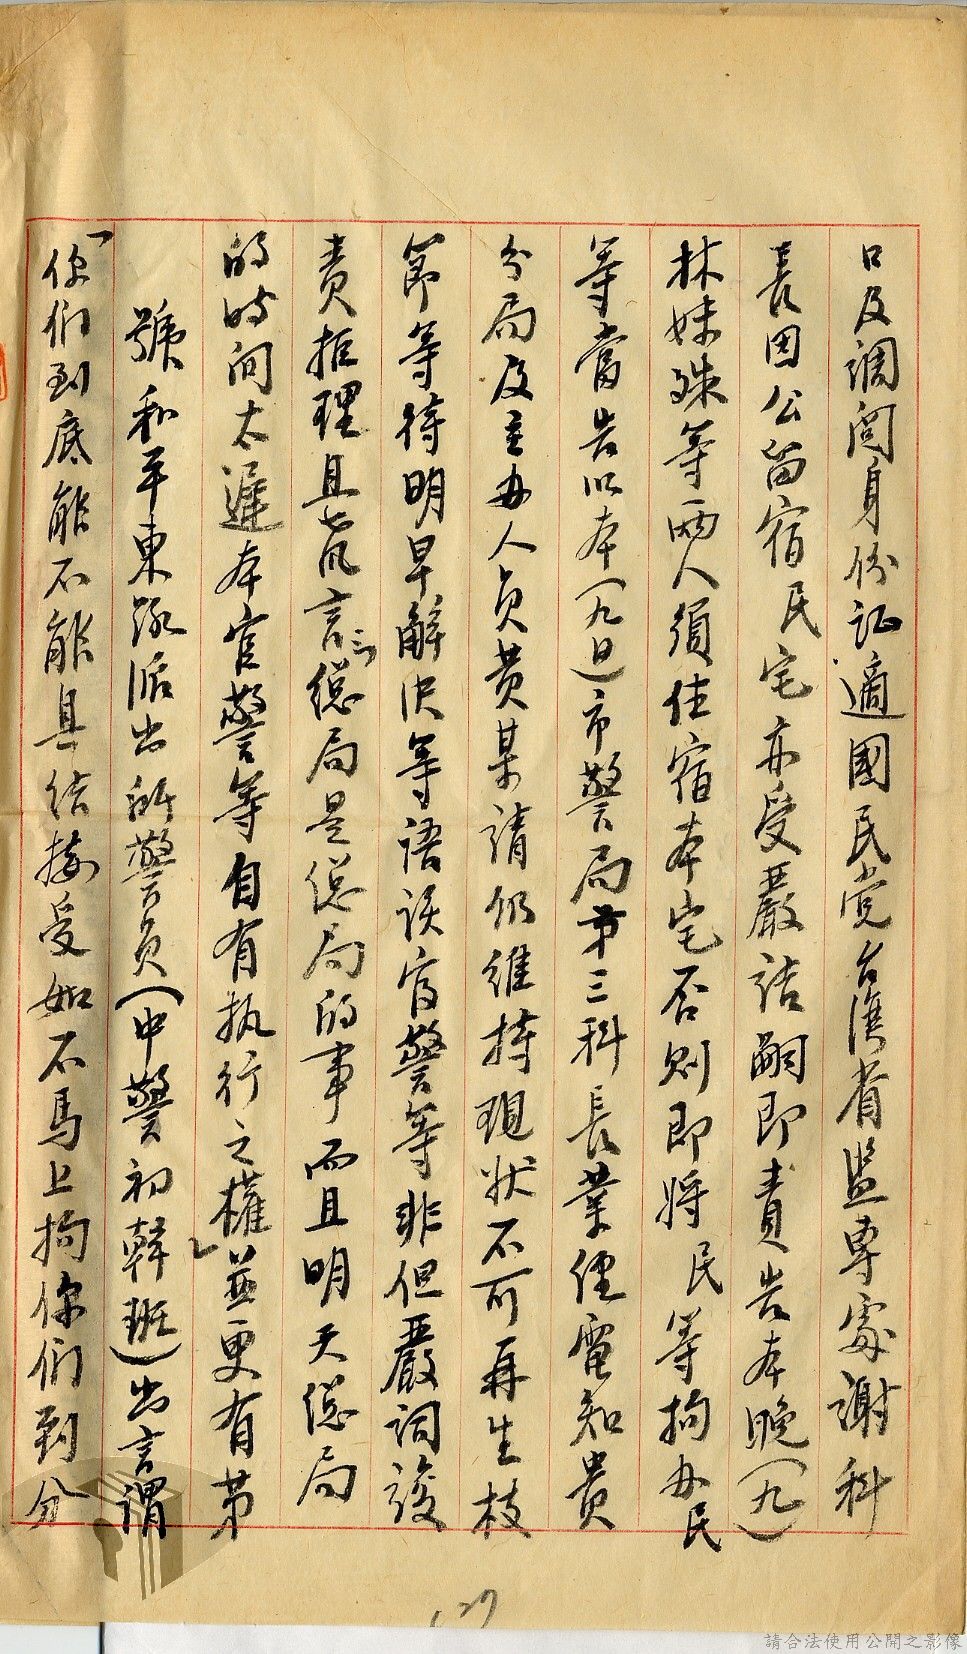 口及調閱身份证適國民党台湾省监専處謝科
長因公留宿民宅亦受嚴詰嗣即責告本晚(九)
林妹殊等兩人須住宿本宅否则即將民等拘办民
等當告以本(九)日市警局第三科長業經電知貴
分局及主办人员黄某請仍維持現狀不可再生枝
節等待明早解决等語该官警等非但嚴詞設
責拒理且
言云總局是總局的事而且明天總局
的时间太遲本官警等自有执行之權並更有第
號和平東路派出所警员(中警初幹班)出言謂
「你们到底能不能具结接受如不馬上拘你们到分
127
請合法使用公開之影像